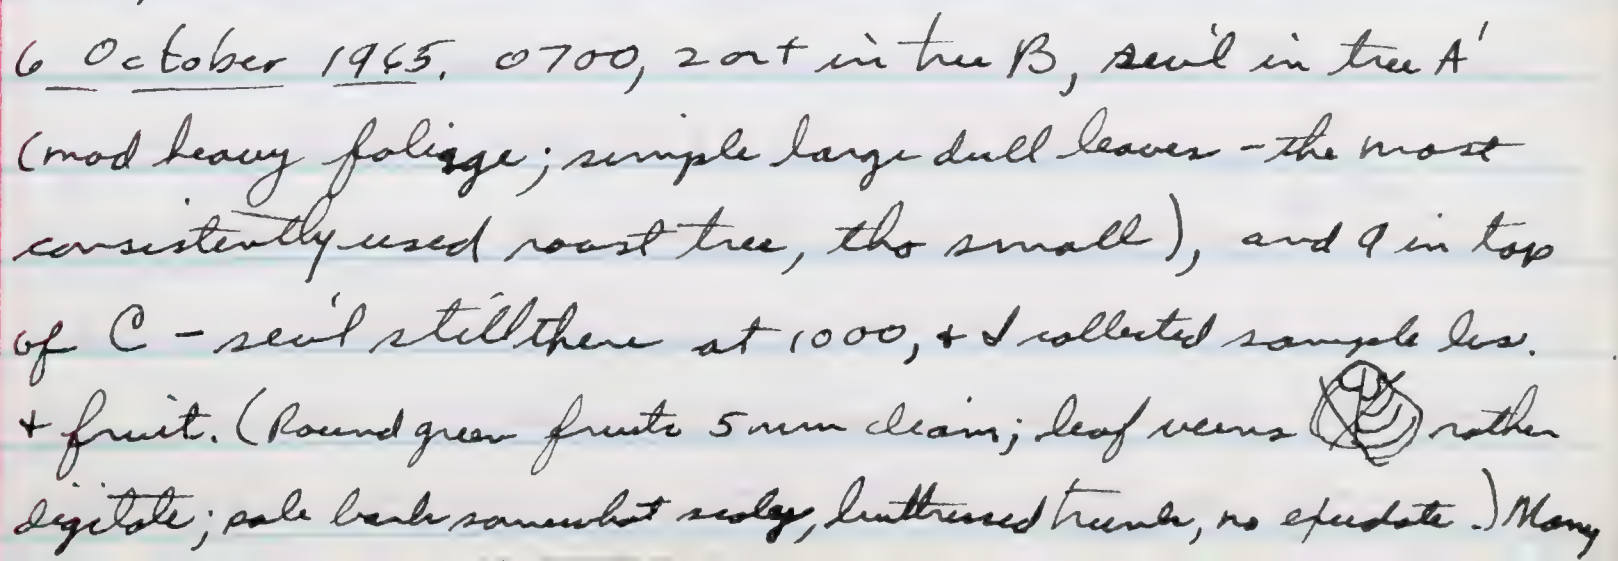 6 October 1965. 0700, 2 or + in tree B, sev'l in tree A'
(mod heavy foliage; simple large dull leaves - the most
consistently used roost tree, tho small), and 9 in top
of C - sev'l still there at 1000, + I collected sample lvs.
+ fruit. (Round green fruits 5 mm diam; leaf veins rather
digitate; pale bark somewhat scaly, buttressed trunk, no exudate.) Many